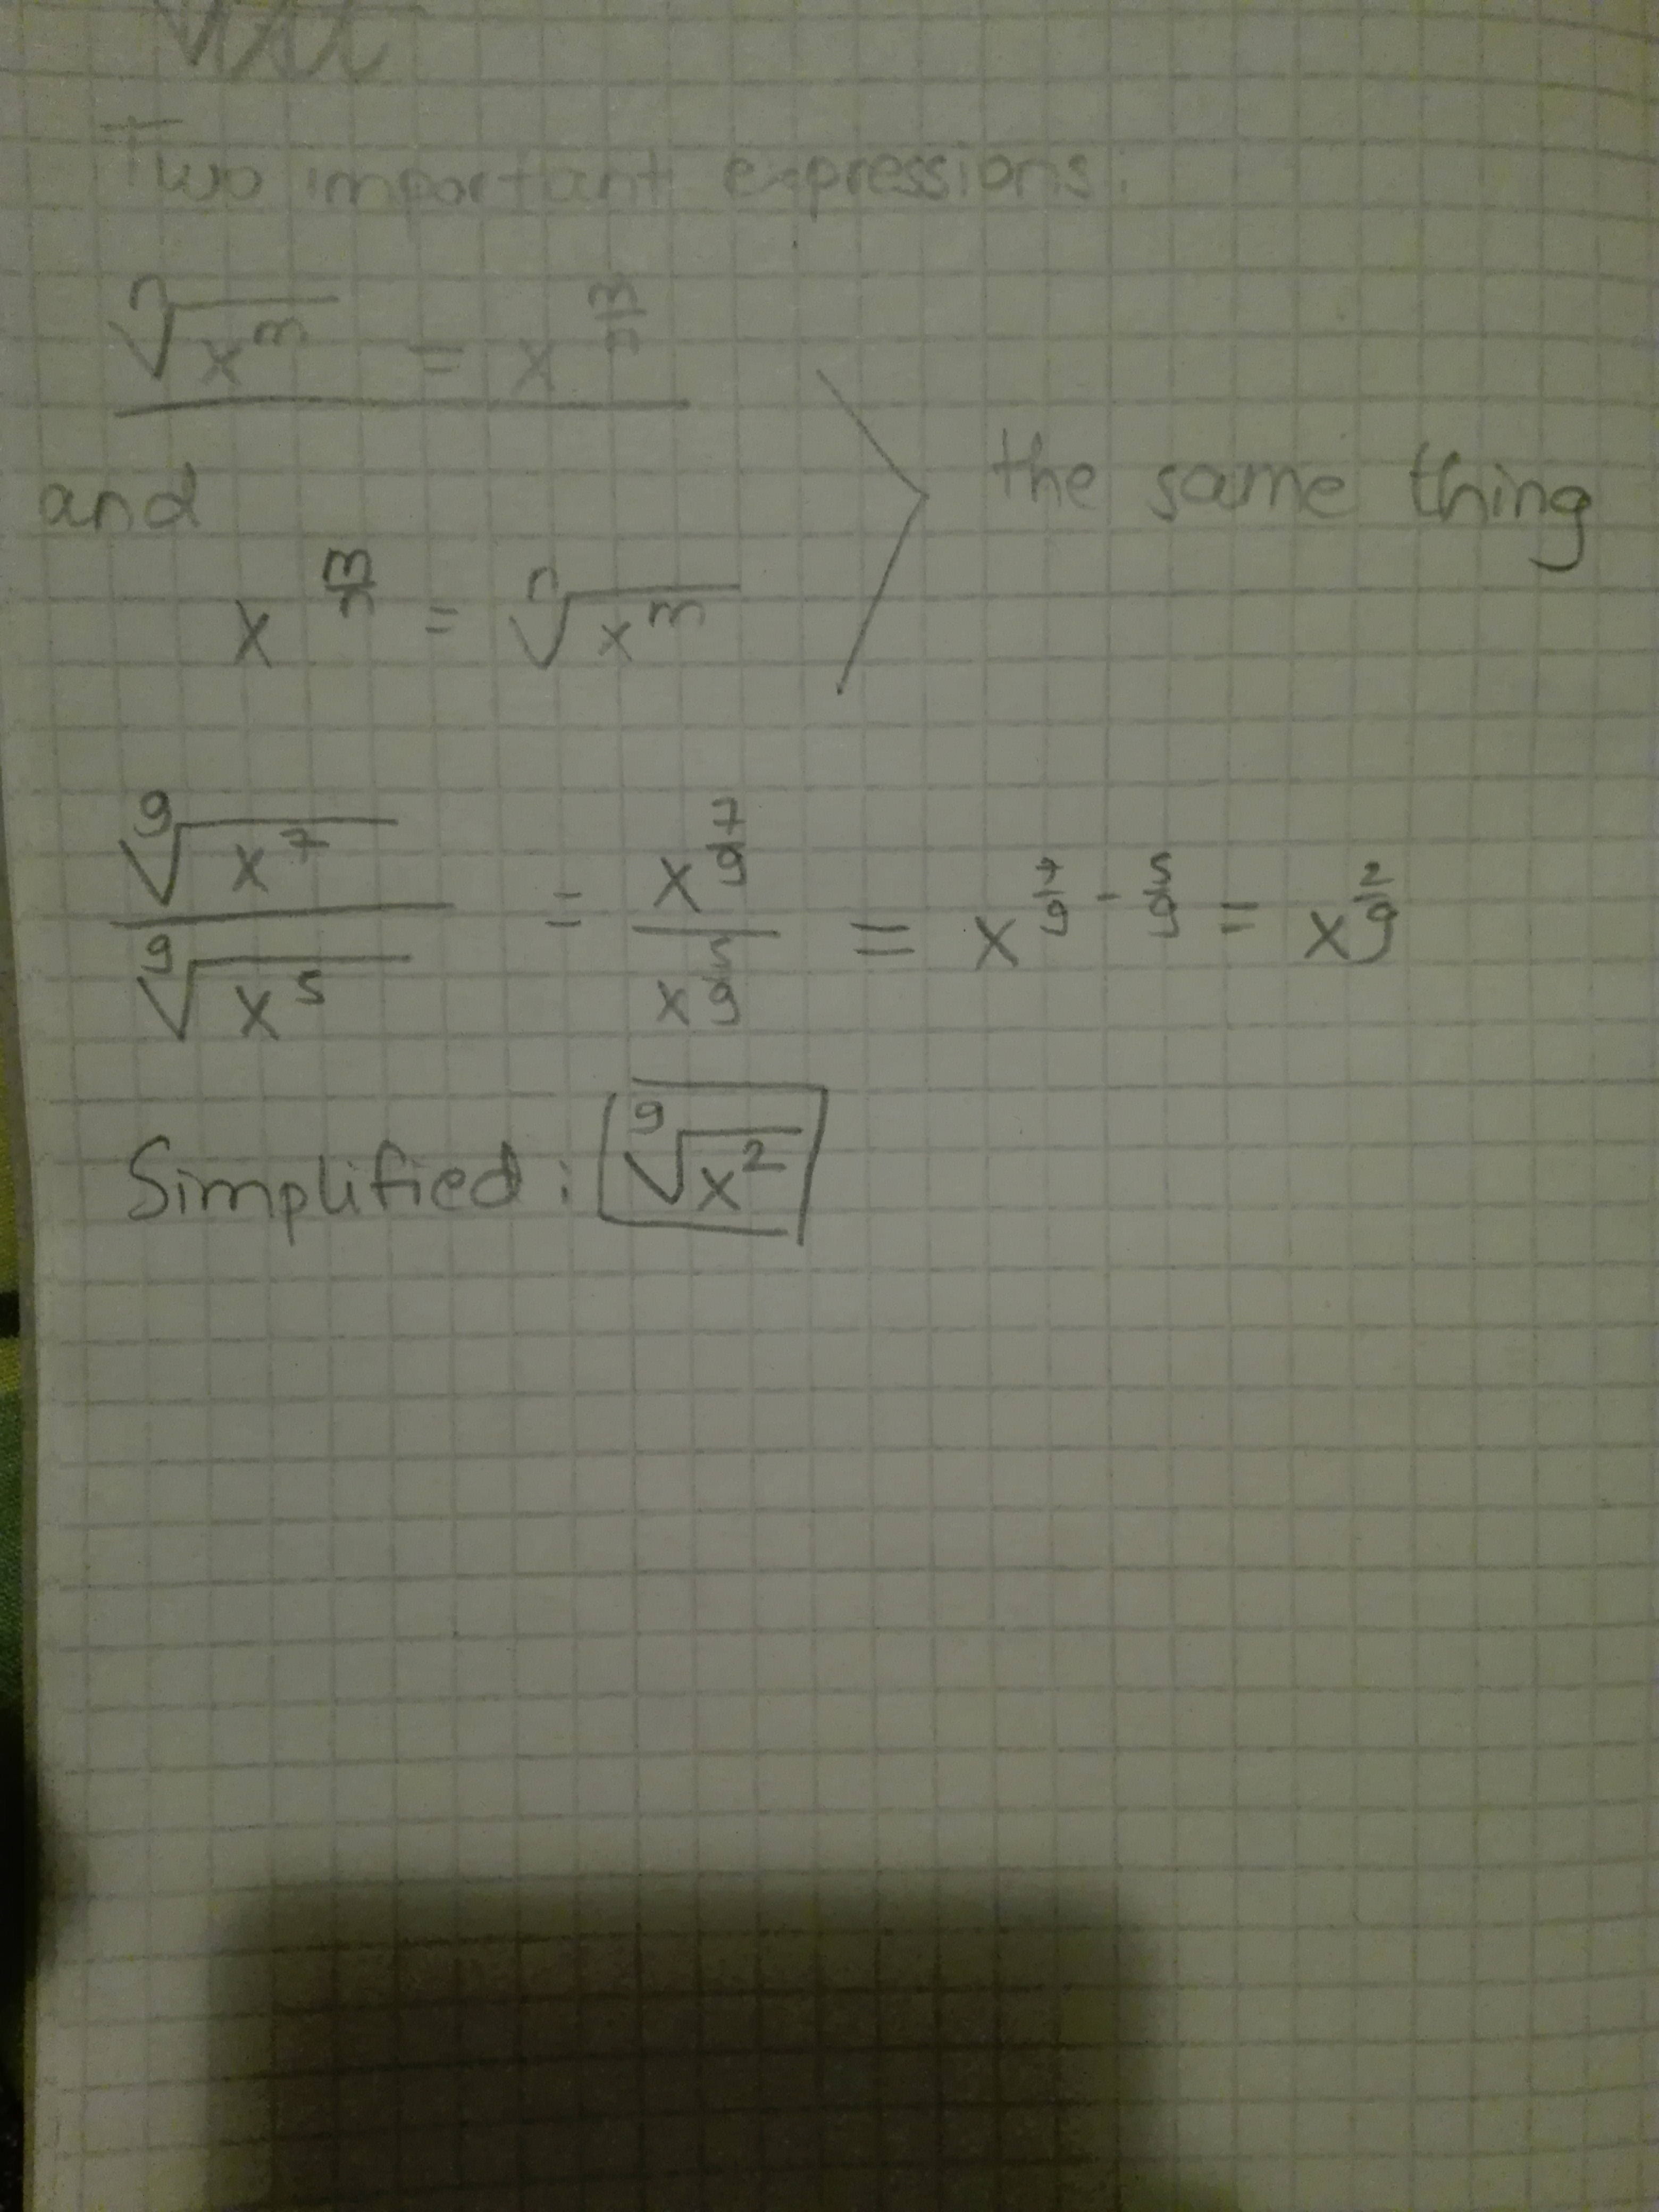 Two important expressions:
ⁿ√(x^m) = x^(m/n)
and
the same thing
x^(m/n) = ⁿ√(x^m)
⁹√(x^7) / ⁹√(x^5) = x^(7/9) / x^(5/9) = x^(7/9 - 5/9) = x^(2/9)
Simplified: ⁹√(x^2)